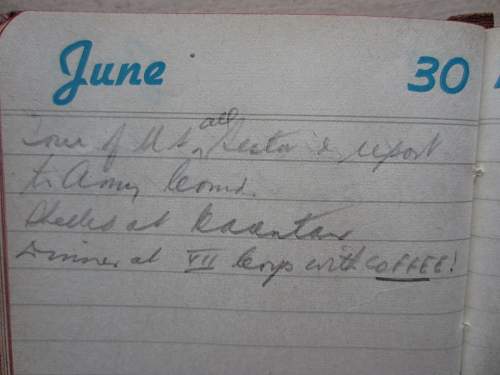 June 30
Tour of all & report
to Army Comd.
at
Dinner at VII Corps with COFFEE!